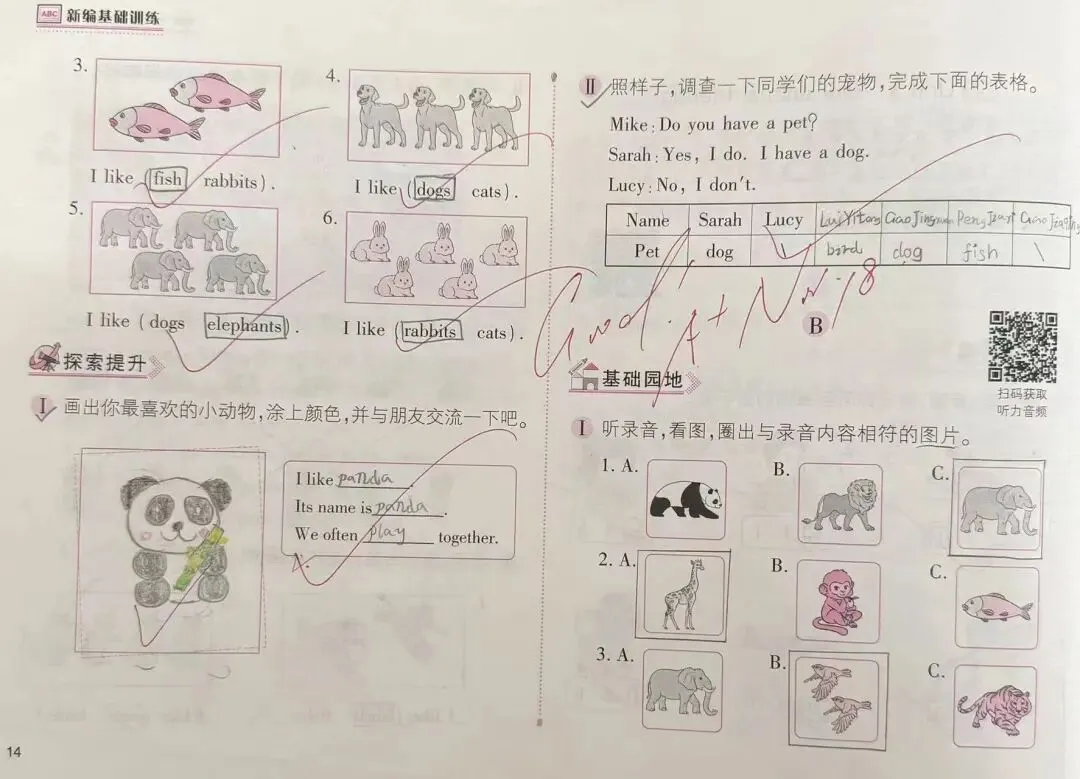 ABC 新编基础训练
3.
4.
I like (fish rabbits).
I like (dogs cats).
5.
6.
I like (dogs elephants).
I like (rabbits cats).
探索提升
I 画出你最喜欢的小动物,涂上颜色,并与朋友交流一下吧。
I like panda.
Its name is panda.
We often play together.
14
II 照样子,调查一下同学们的宠物,完成下面的表格。
Mike: Do you have a pet?
Sarah: Yes, I do. I have a dog.
Lucy: No, I don't.
Name Sarah Lucy
Pet dog \ bird dog fish \
Good! A+
B
扫码获取
听力音频
基础园地
I 听录音,看图,圈出与录音内容相符的图片。
1. A. B. C.
2. A. B. C.
3. A. B. C.